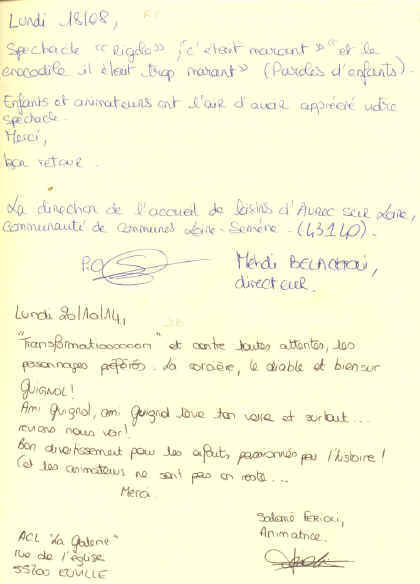 Lundi 18/08,
Spectacle "rigolo", "c'était marant" "et le
crocodile il était trop marant" (Paroles d'enfants).
Enfants et animateurs ont l'air d'avoir apprécié votre
spectacle.
Merci,
bon retour.
La direction de l'accueil de loisirs d'Aurec sur Loire,
Communauté de communes Loire-Semène. (43140).
P.O
Mehdi
directeur.
Lundi 20/10/14,
"Transformatiooooon" et contre toutes attentes, les
personnages préférés. La sorcière, le diable et bien sur
GUIGNOL!
Ami Guignol, ami Guignol lève ton verre et surtout...
reviens nous voir!
Bon divertissement pour les enfants passionnés par l'histoire!
(et les animateurs ne sont pas en reste...
Merci.
Salomé
Animatrice.
ACL "La Galerie"
rue de l'église